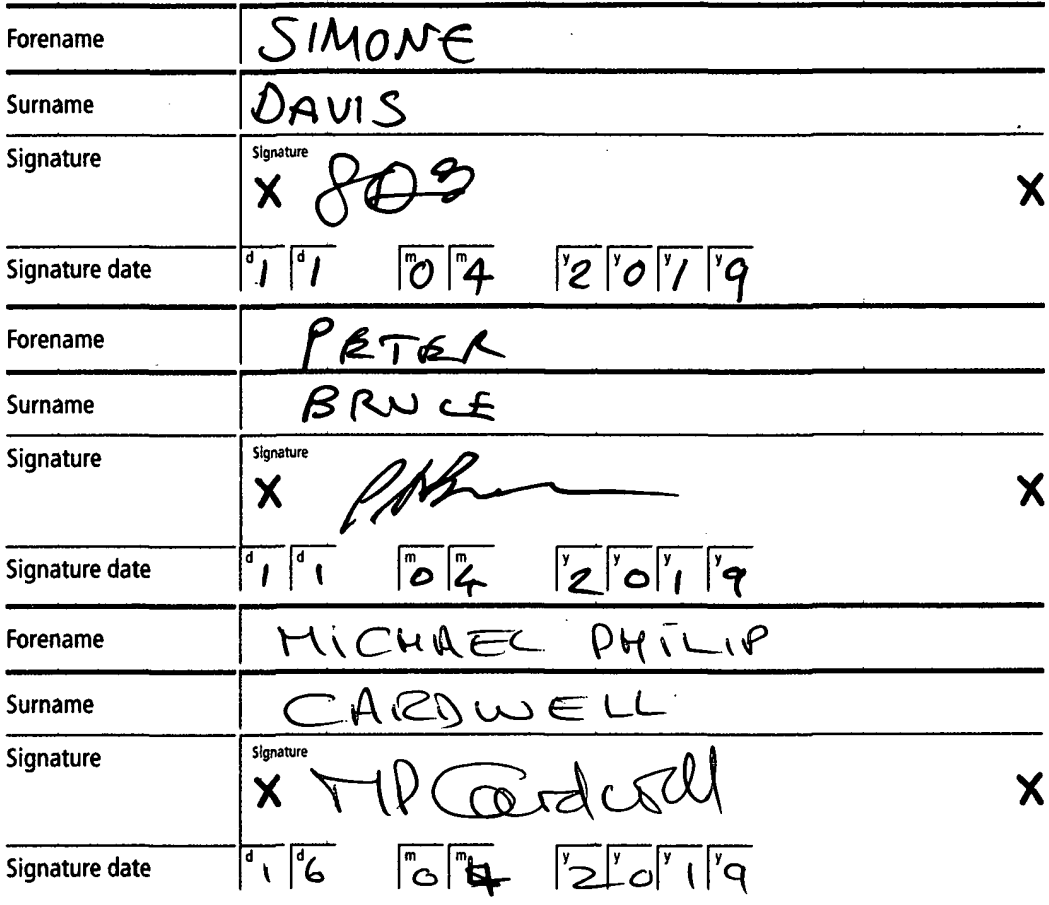 Forename SIMONE
Surname DAVIS
Signature Signature
X X
Signature date d1 d1 m0 m4 y2 y0 y1 y9
Forename PETER
Surname BRUCE
Signature Signature
X X
Signature date d1 d1 m0 m4 y2 y0 y1 y9
Forename MICHAEL PHILIP
Surname CARDWELL
Signature Signature
X MP Cardwell X
Signature date d1 d6 m0 m4 y2 y0 y1 y9